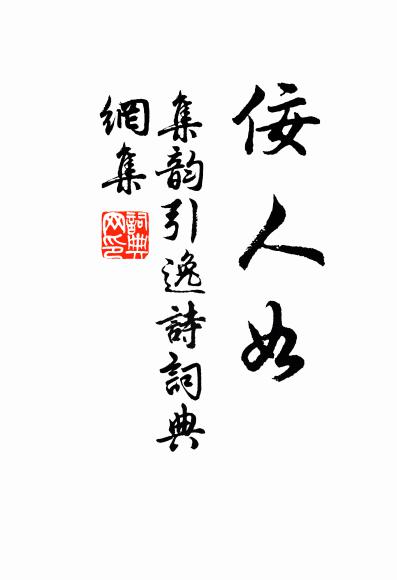 佞人如
集韵引逸詩詞典
網集
詞典
网印